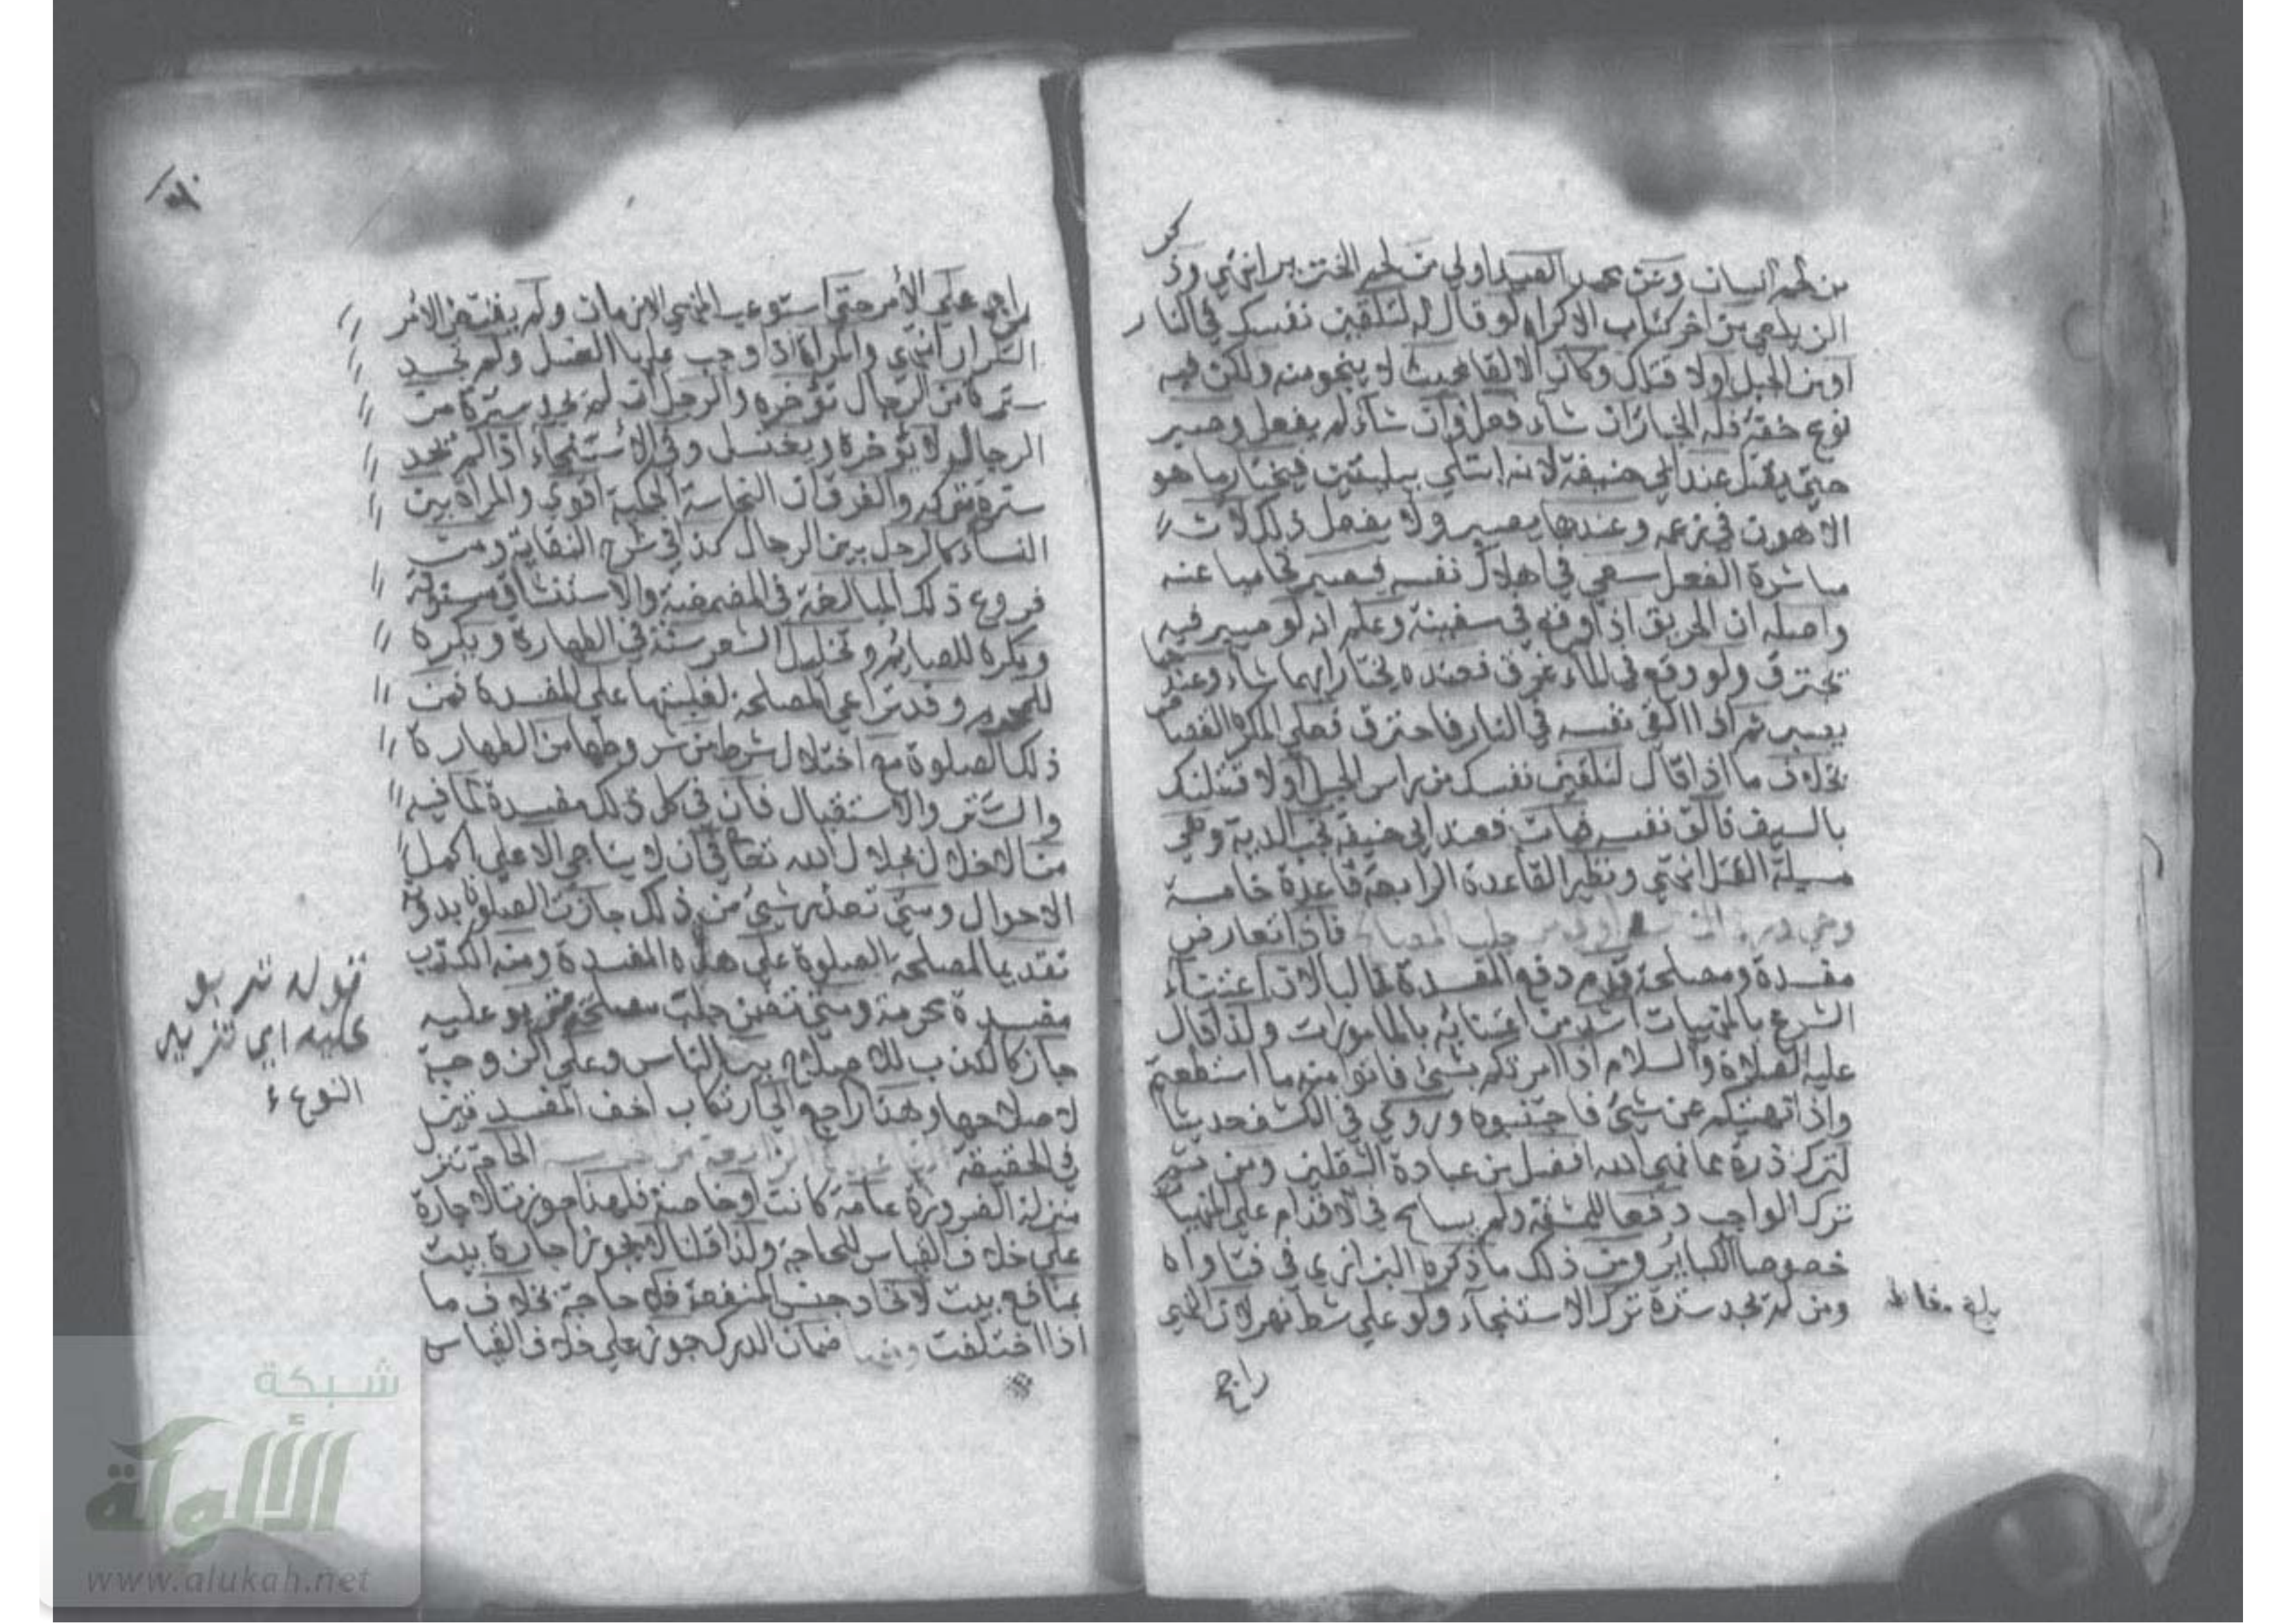 من لحم انسان وعن محمد الصيد اولي من لحم الخنزير انتهي وذكر
الزيلعي من اخر كتاب الاكراه لو قال له لتلقين نفسك في النار
او من الجبل او لاقتلك وكان الالقا بحيث لا ينجو منه ولكن فيه
نوع خفة فله الخيار ان شاء فعل وان شاء لم يفعل وصبر
حتي يقتل عند ابي حنيفة لانه ابتلي ببليتين فيختار ما هو
الاهون في زعمه وعندهما يصبر ولا يفعل ذلك لان
مباشرة الفعل سعي في اهلاك نفسه فيصبر تحاميا عنه
واصله ان الحريق اذا وقع في سفينة وعلم انه لو صبر فيه
يحترق ولو وقع في الماء غرق فعنده يختار ايهما شاء وعندهما
يصبر ثم اذا القي نفسه في النار فاحترق فعلي المكره القصاص
بخلاف ما اذا قال لتلقين نفسك من راس الجبل او لاقتلنك
بالسيف فالقي نفسه فمات فعند ابي حنيفة تجب الدية وهي
مسيلة القتل انتهي ونظير القاعدة الرابعة قاعدة خامسة
وهي درء المفاسد اولي من جلب المصالح فاذا تعارض
مفسدة ومصلحة قدم دفع المفسدة غالبا لان اعتناء
الشرع بالمنهيات اشد من اعتنائه بالمامورات ولذا قال
عليه الصلاة والسلام اذا امرتكم بشيء فاتوا منه ما استطعتم
واذا نهيتكم عن شيء فاجتنبوه وروي في الكشف حديثا
لترك ذرة مما نهي الله افضل من عبادة الثقلين ومن ثم
ترك الواجب دفعا للمشقة ولم يسامح في الاقدام علي المنهيات
خصوصا الكباير ومن ذلك ما ذكره البزازي في فتاواه
ومن لم يجد سترة ترك الاستنجاء ولو علي شط نهر لان النهي
راجح
بلغ مقابلة
راجح علي الامر حتي استوعب النهي الازمان ولم يقتض الامر
التكرار انتهي والمراة اذا وجب عليها الغسل ولم تجد
سترة من الرجال تؤخره والرجل ان لم يجد سترة من
الرجال لا يؤخره ويغتسل وفي الاستنجاء اذا لم تجد
سترة تتركه والفرق ان النجاسة الحكمية اقوي والمراة بين
النساء كالرجل بين الرجال كذا في شرح النقاية ومن
فروع ذلك المبالغة في المضمضة والاستنشاق مسنونة
ويكره للصايم وتخليل الشعر سنة في الطهارة ويكره
للمحرم وقد تراعي المصلحة لغلبتها علي المفسدة فمن
ذلك الصلوة مع اختلال شرط من شروطها من الطهارة
والستر والاستقبال فان في كل ذلك مفسدة لما فيه
من الاخلال بجلال الله تعالي في ان لا يناجي الا علي اكمل
الاحوال ومتي تعذر شيء من ذلك جازت الصلوة بدونه
تقديما لمصلحة الصلوة علي هذه المفسدة ومنه الكذب
مفسدة محرمة ومتي تضمن جلب مصلحة تربو عليه
جاز كالكذب للاصلاح بين الناس وعلي الزوجة
لاصلاحها وهذا راجع الي ارتكاب اخف المفسدتين
في الحقيقة الحاجة تنزل
منزلة الضرورة عامة كانت او خاصة فلهذا جوزت الاجارة
علي خلاف القياس للحاجة ولذا قلنا لا يجوز اجارة بيت
بمنافع بيت لاتحاد جنس المنفعة فلا حاجة بخلاف ما
اذا اختلفت ومنها ضمان الدرك جوز علي خلاف القياس
قوله تربو
عليه اي تزيد
النوع
شبكة
الألوكة
www.alukah.net